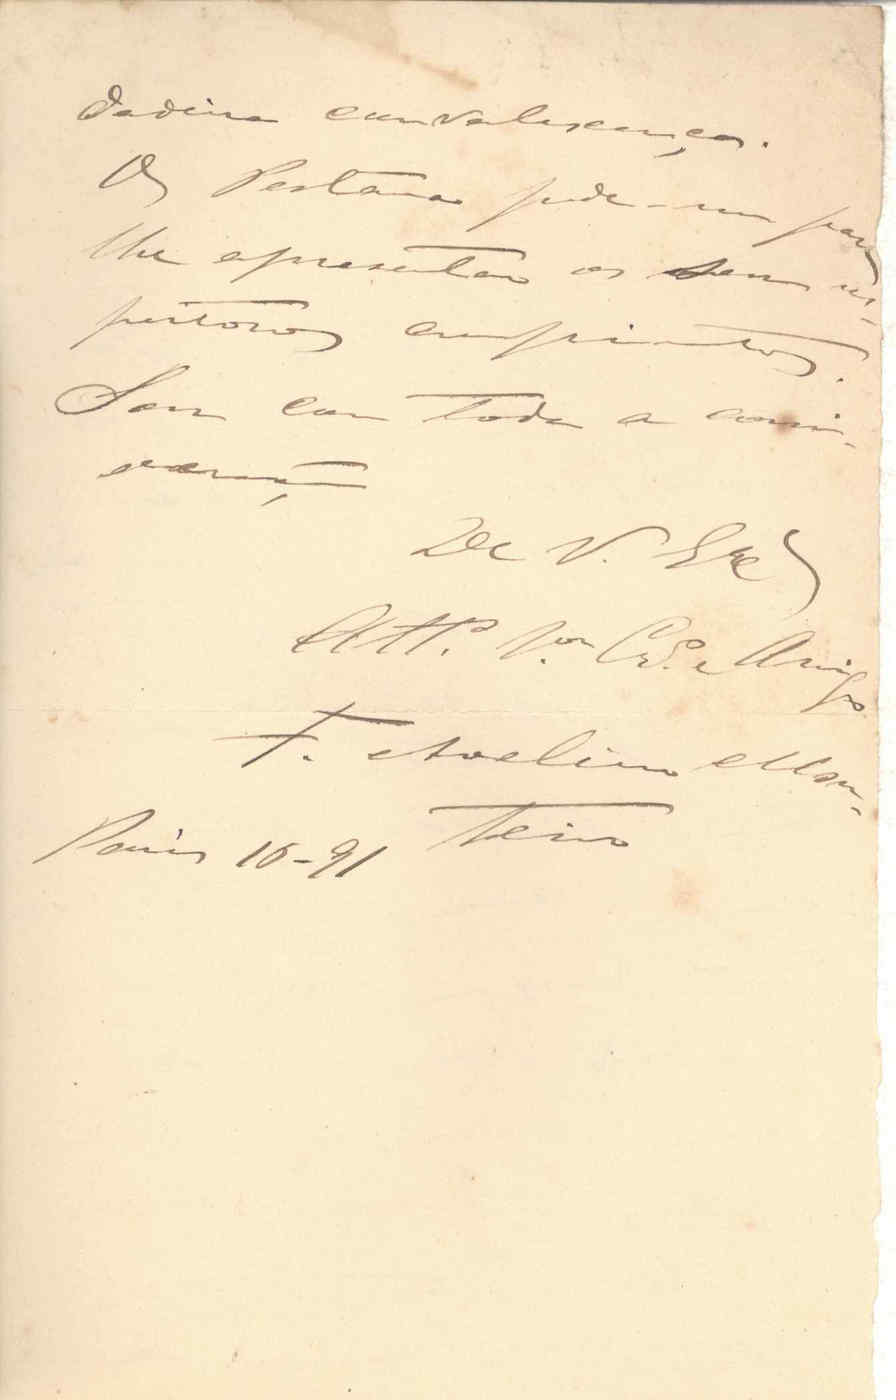 dadeira convalescença.
O Pestana pede-me para
lhe apresentar os seus res-
peitosos cumprimentos.
Sou com toda a consi-
deração
De V. Exª
Attº. Vor Cr. e Amigo
F. Avelino Mon-
teiro
Paris 16-91